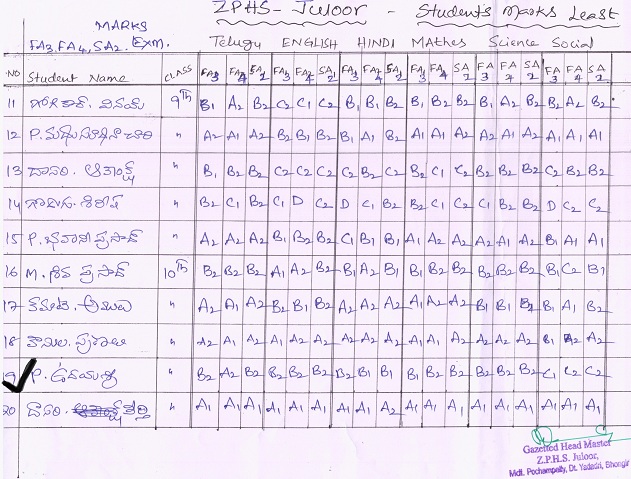 ZPHS- Juloor - Students Marks Least
MARKS
FA3, FA4, SA2. EXM. Telugu ENGLISH HINDI MAthes Science Social
NO Student Name CLASS FA3 FA4 SA2 FA3 FA4 SA2 FA3 FA4 SA2 FA3 FA4 SA2 FA3 FA4 SA2 FA3 FA4 SA2
11 వినయ్ 9th B1 A2 B2 C2 C1 C2 B1 B1 B2 B1 B2 B2 B1 A2 B2 B2 A2 B2
12 P. " A2 A1 A2 B2 B1 B2 B1 A1 B2 A1 A2 A2 A2 A1 A2 A1 A1 A1
13 దాసరి. " B1 B2 B2 C2 C2 C2 C2 B2 C2 B2 C1 C2 B2 B2 B2 C2 B2 B2
14 " B2 C1 B2 C1 D C2 D C1 B2 B2 C1 C2 C1 B2 B2 D C2 C2
15 P. భవాని ప్రసాద్ " A2 A2 A2 B1 B2 B2 C1 B1 B1 A1 A2 A2 A2 A2 A2 B1 A1 A1
16 M. శివ ప్రసాద్ 10th B2 B2 B2 A1 A2 B2 B1 A2 B1 B1 B2 B2 B2 B2 B2 B1 C2 B1
17 " A2 A1 A2 B2 B1 B2 A2 A2 A2 A1 A2 A2 B1 B1 B2 B1 A1 B2
18 " A2 A1 A2 A2 A1 A2 A2 A2 A2 A1 A2 A2 A2 A2 A2 B1 A2 A2
19 P. " B2 A2 B2 A2 B2 B2 B2 B1 B1 B1 B2 B2 B2 B2 B2 C1 C2 C2
20 దాసరి. " A1 A1 A1 A1 A1 A1 A1 A1 A2 A1 A1 A1 A1 A1 A1 A1 A1 A1
Gazetted Head Master
Z.P.H.S. Juloor,
Mdl. Pochampally, Dt. Yadadri, Bhongir